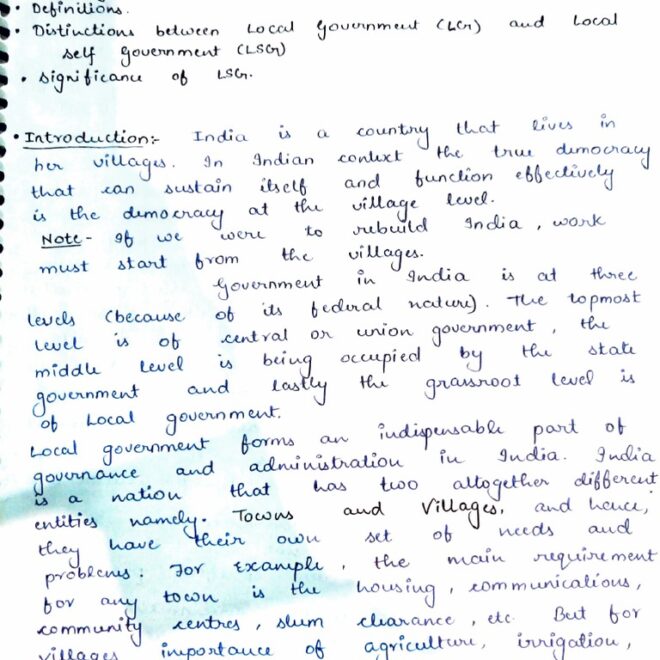 • Definitions.
• Distinctions between Local Government (LG) and Local
self government (LSG)
• Significance of LSG.
• Introduction:- India is a country that lives in
her villages. In Indian context the true democracy
that can sustain itself and function effectively
is the democracy at the village level.
Note- If we were to rebuild India, work
must start from the villages.
Government in India is at three
levels (because of its federal nature). The topmost
level is of central or union government, the
middle level is being occupied by the state
government and lastly the grassroot level is
of Local government.
Local government forms an indispensable part of
governance and administration in India. India
is a nation that has two altogether different
entities namely. Towns and Villages, and hence,
they have their own set of needs and
problems. For Example, the main requirement
for any town is the housing, communications,
community centres, slum clearance, etc. But for
villages importance of agriculture, irrigation,